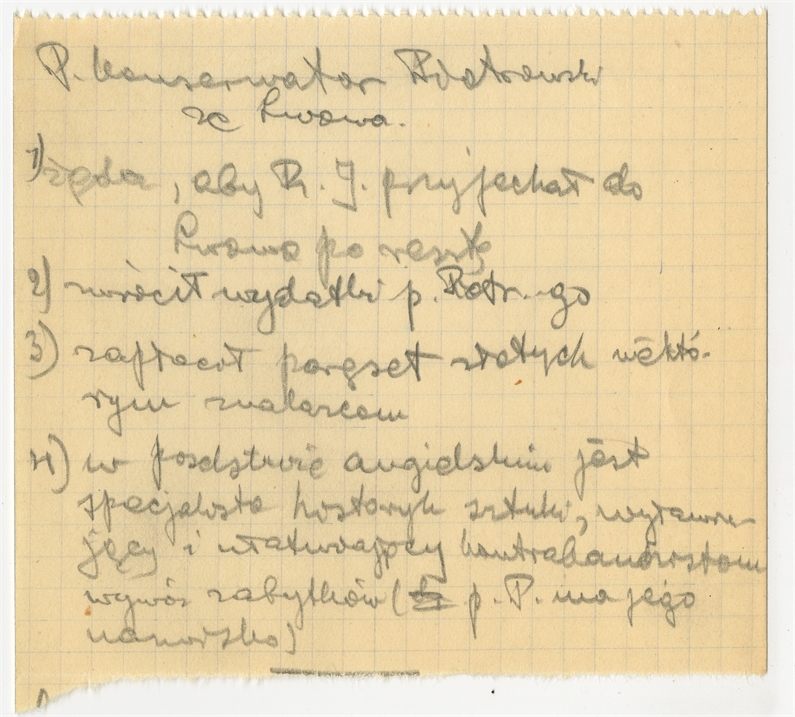 P. konserwator Piotrowski
ze Lwowa.
1) żąda, aby R. J. przyjechał do
Lwowa po resztę
2) zwrócił wydatki p. Piotr-go
3) zapłacił paręset złotych niektó-
rym znalazcom
4) w poselstwie angielskim jest
specjalista historyk sztuki,
jący i ułatwiający kontrabandzistom
wywóz zabytków ( p. P. ma jego
nazwisko)